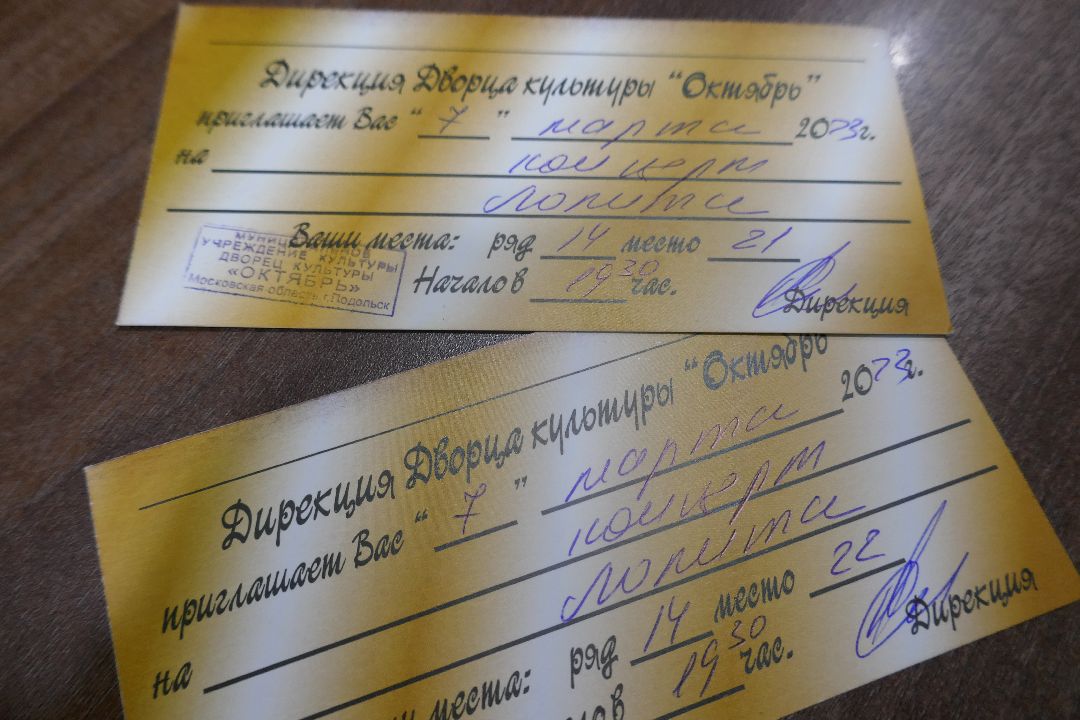 Дирекция Дворца культуры “Октябрь”
приглашает Вас “ 7 ” марта 2023г.
на концерт
Лолита
Ваши места: ряд 14 место 21
Начало в 19 30 час.
Дирекция
УЧРЕЖДЕНИЕ КУЛЬТУРЫ
ДВОРЕЦ КУЛЬТУРЫ
«ОКТЯБРЬ»
Московская область г. Подольск
Дирекция Дворца культуры “Октябрь
приглашает Вас “ 7 ” марта 2023г.
на концерт
Лолита
места: ряд 14 место 22
19 30 час.
Дирекция